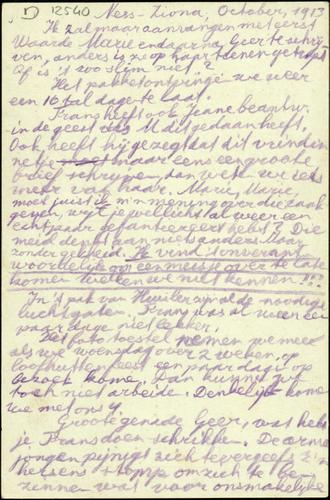 1) 12540 Ness-Ziona, October, 1913
Ik zal maar aanvangen met eerst
Waarde Marie en daarna Geer te schrij-
ven, anders is ze op haar tenen getrapt
Of is 't zoo slim niet?
Het pakket ontvinge we weer
een 10tal dage te laat.
Frans heeft ook Jeane beantw.
in de geest als U dit gedaan heeft.
Ook heeft hij gezegd dat dit vriendin
netje maar eens een groote
brief schrijven, dan wete we iets
meer van haar. Marie, Marie,
moet juist ik m'n meening over die zaak
geven, wijl je wellicht al weer een
echtpaar gefantaseert hebt? Die
meid denkt aan niets anders. Maar
zonder gekheid. Ik vind 't onverant-
woordelijk om een meisje over te late
komen welke we niet kennen!!!
In 't pak van Huy zijn al de noodige
luchtgaten. Frans was al weer een
paar dage niet lekker.
Het fototoestel nemen we mee
als we woensdag over 2 weken, op
Loofhuttenfeest een paar dage op
bezoek kome. Dan kunne we
toch niet arbeide. Denkelijk kome
we met ons 4.
Groote genade Geer, wat heb
je Frans doen schrikken. De arme
jongen pijnigt zich tevergeefs z'n
hersens stomp om zich te be-
zinnen wat voor onsmakelijke